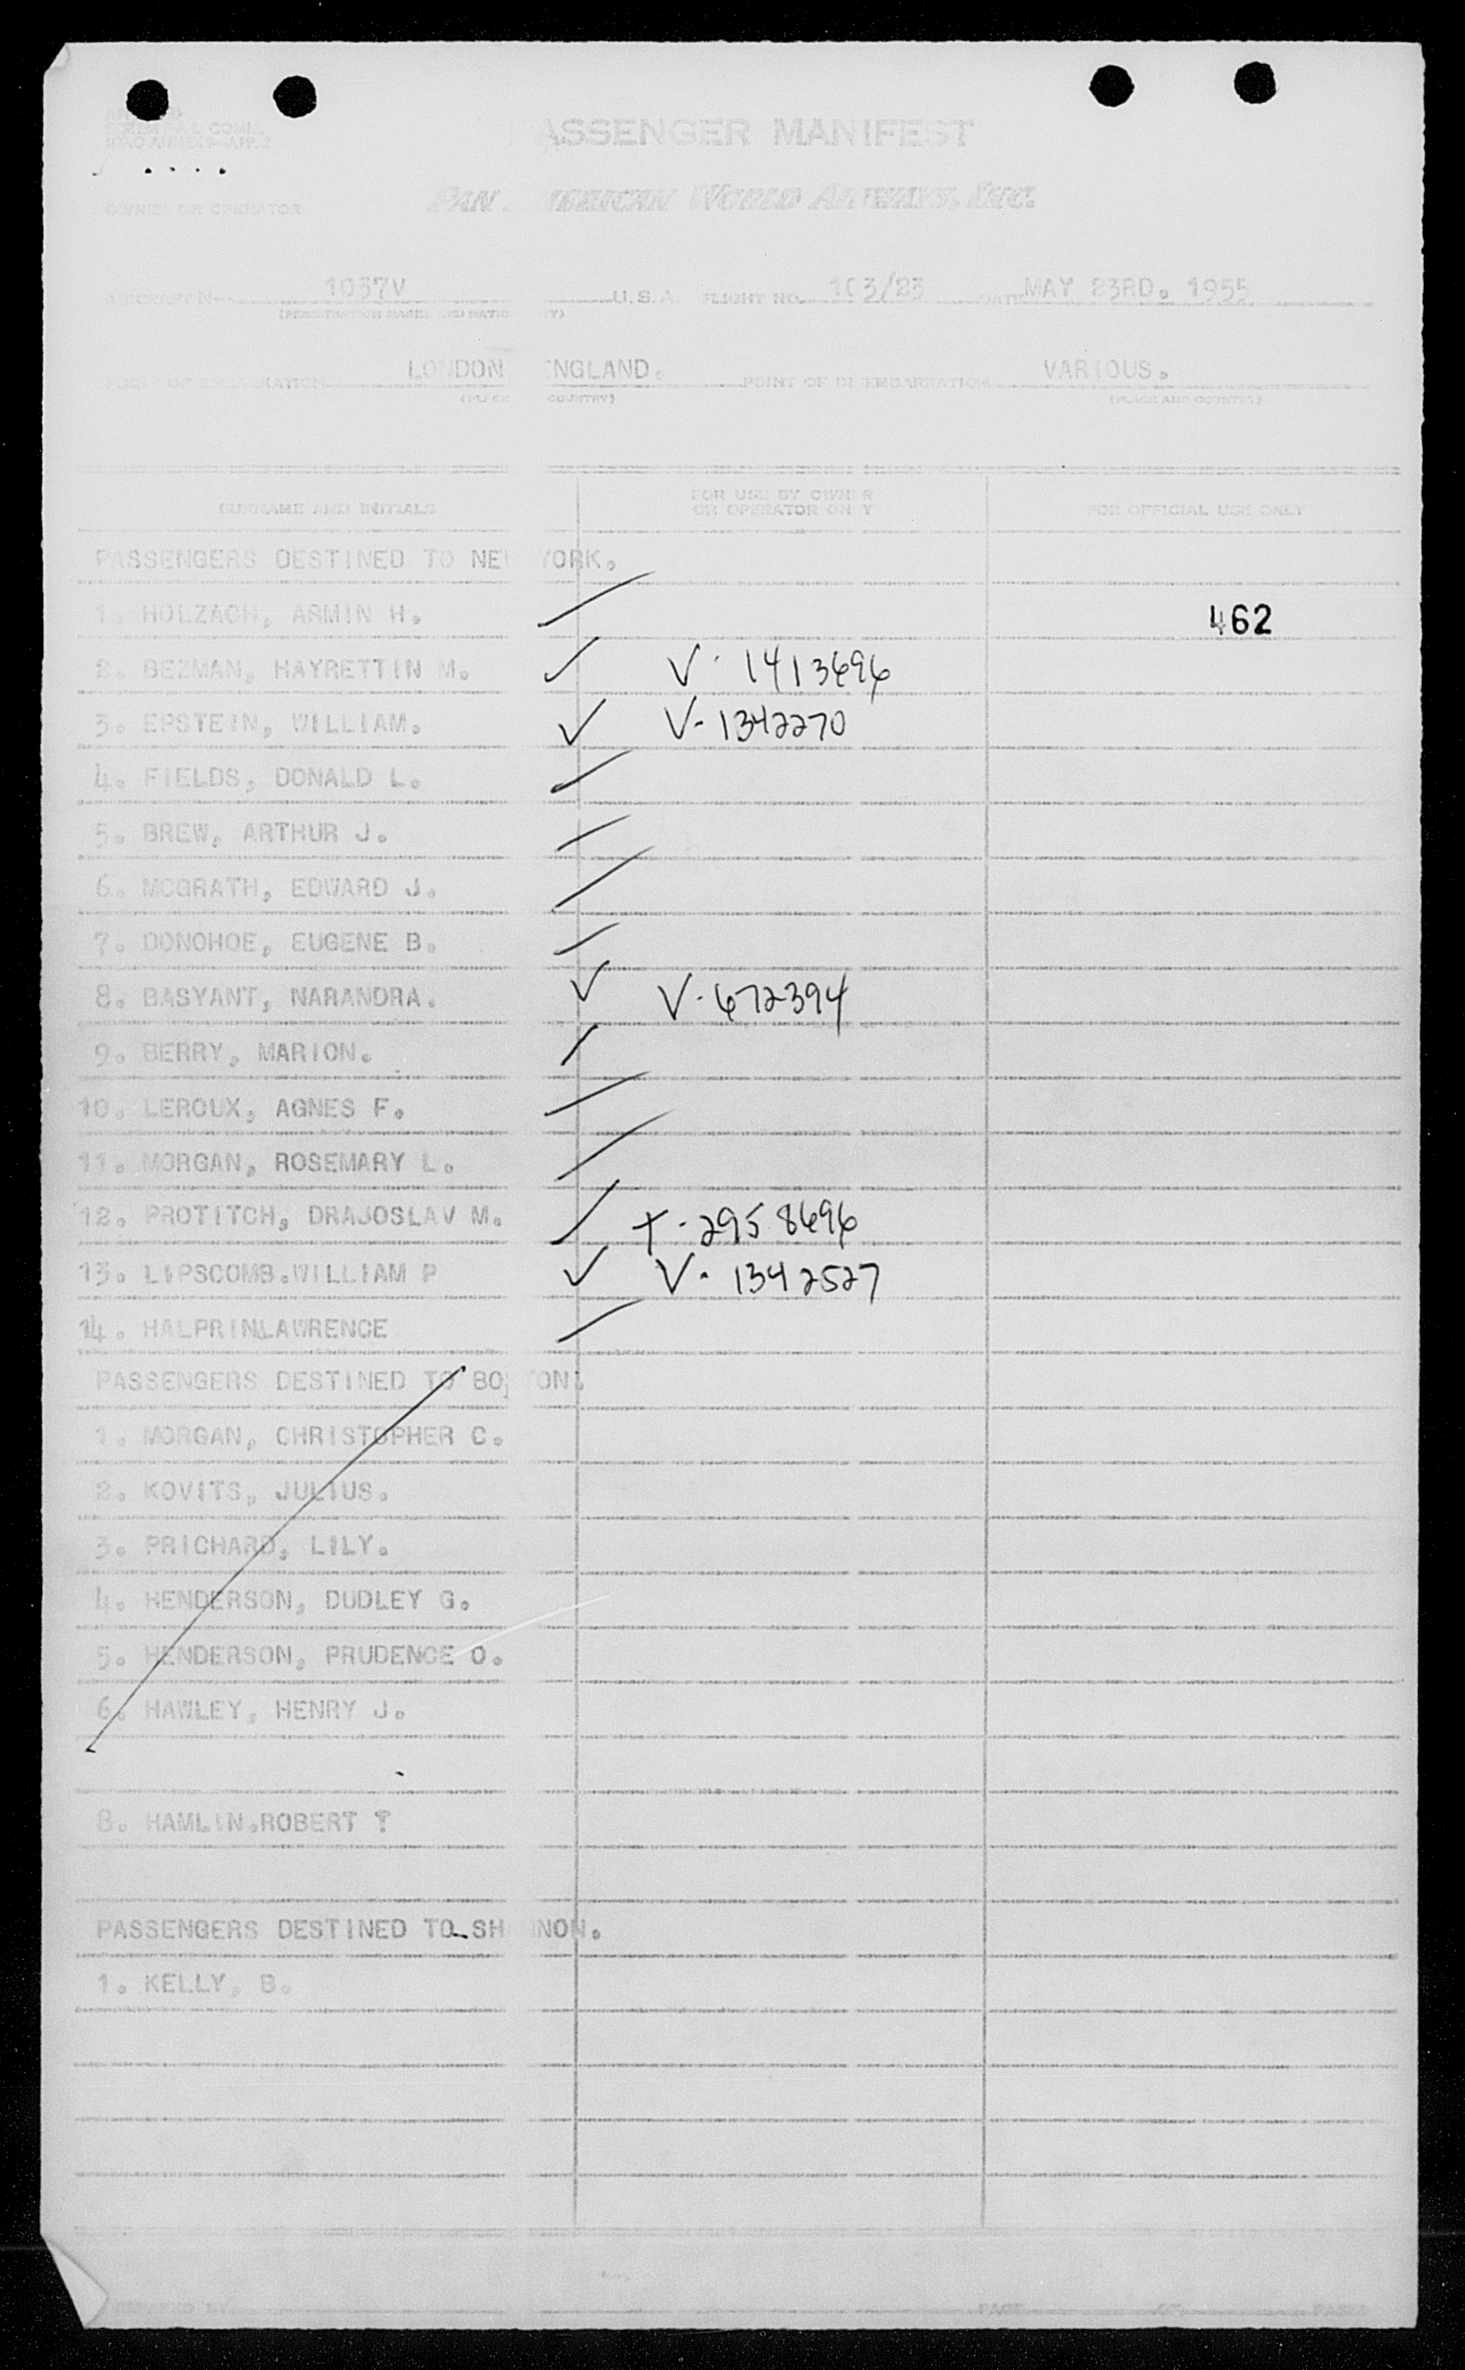 PASSENGER MANIFEST
PAN AMERICAN WORLD AIRWAYS, INC.
OWNER OR OPERATOR
1037V U.S.A. FLIGHT NO. 103/23 DATE MAY 23RD. 1955
LONDON ENGLAND. POINT OF DISEMBARKATION VARIOUS.
(PLACE AND COUNTRY)
SURNAME AND INITIALS FOR USE BY OWNER OR OPERATOR ONLY FOR OFFICIAL USE ONLY
PASSENGERS DESTINED TO NEW YORK.
1. HOLZACH, ARMIN H. 462
2. BEZMAN, HAYRETTIN M. V-1413696
3. EPSTEIN, WILLIAM. V-1342270
4. FIELDS, DONALD L.
5. BREW, ARTHUR J.
6. MCGRATH, EDWARD J.
7. DONOHOE, EUGENE B.
8. BASYANT, NARANDRA. V-672394
9. BERRY, MARION.
10. LEROUX, AGNES F.
11. MORGAN, ROSEMARY L.
12. PROTITCH, DRAJOSLAV M. +-2958696
13. LIPSCOMB.WILLIAM P V-1342527
14. HALPRIN,LAWRENCE
PASSENGERS DESTINED TO BOSTON.
1. MORGAN, CHRISTOPHER C.
2. KOVITS, JULIUS.
3. PRICHARD, LILY.
4. HENDERSON, DUDLEY G.
5. HENDERSON, PRUDENCE O.
6. HAWLEY, HENRY J.
8. HAMLIN.ROBERT T
PASSENGERS DESTINED TO SHANNON.
1. KELLY, B.
PREPARED BY PAGE OF PAGES